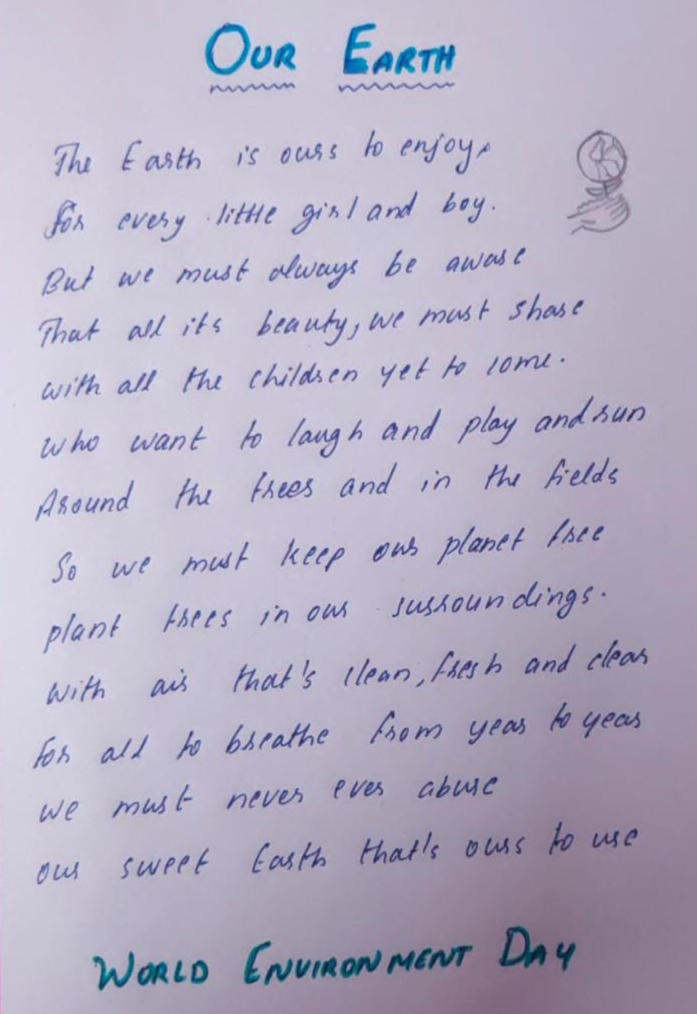 OUR EARTH
The Earth is ours to enjoy.
for every little girl and boy.
But we must always be aware
That all its beauty, we must share
with all the children yet to come.
who want to laugh and play and run
Around the trees and in the fields
So we must keep our planet free
plant trees in our surroundings.
with air that's clean, fresh and clear
for all to breathe from year to year
we must never ever abuse
our sweet Earth that's ours to use
WORLD ENVIRONMENT DAY